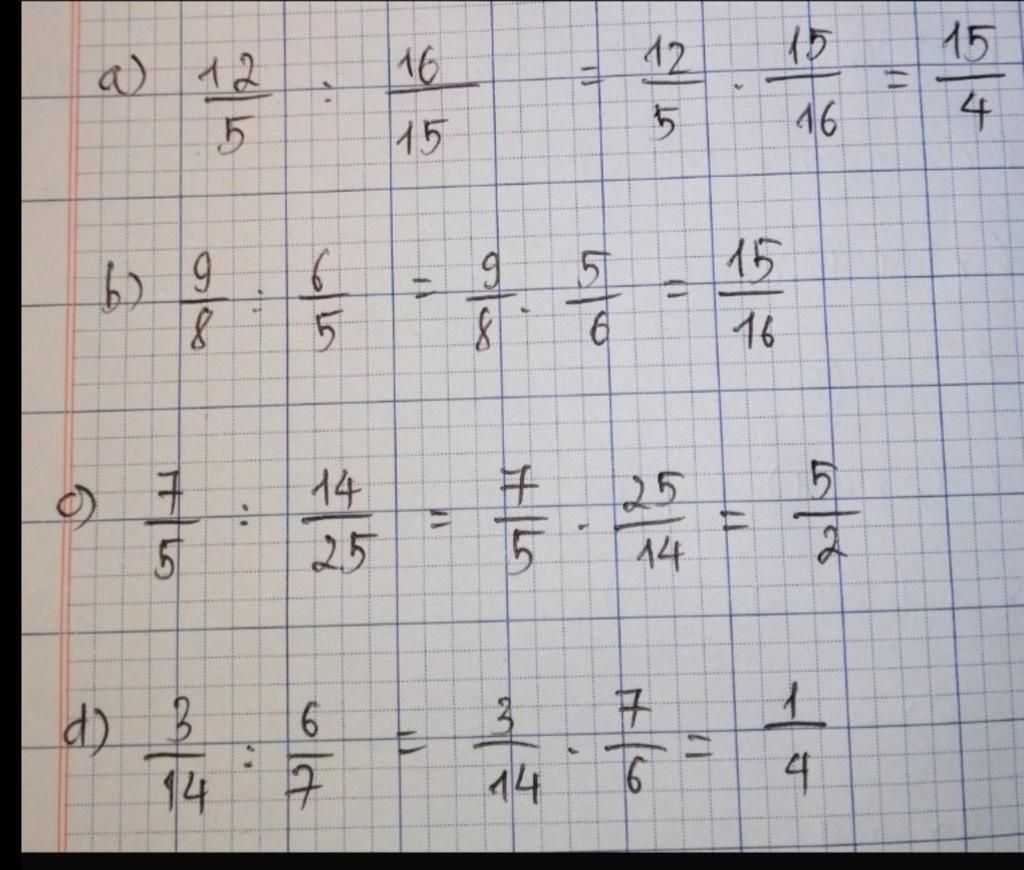 a) 12/5 : 16/15 = 12/5 . 15/16 = 15/4
b) 9/8 : 6/5 = 9/8 . 5/6 = 15/16
c) 7/5 : 14/25 = 7/5 . 25/14 = 5/2
d) 3/14 : 6/7 = 3/14 . 7/6 = 1/4